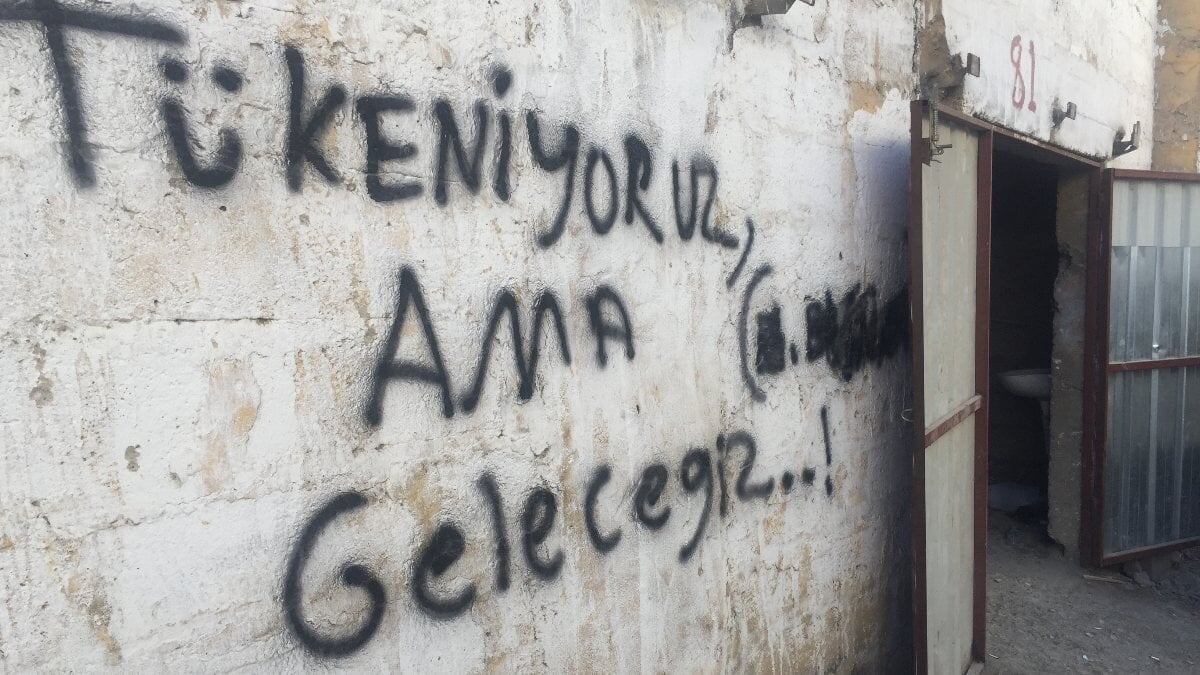 TükENiyoruz,
AMA
Gelecegiz...!
81